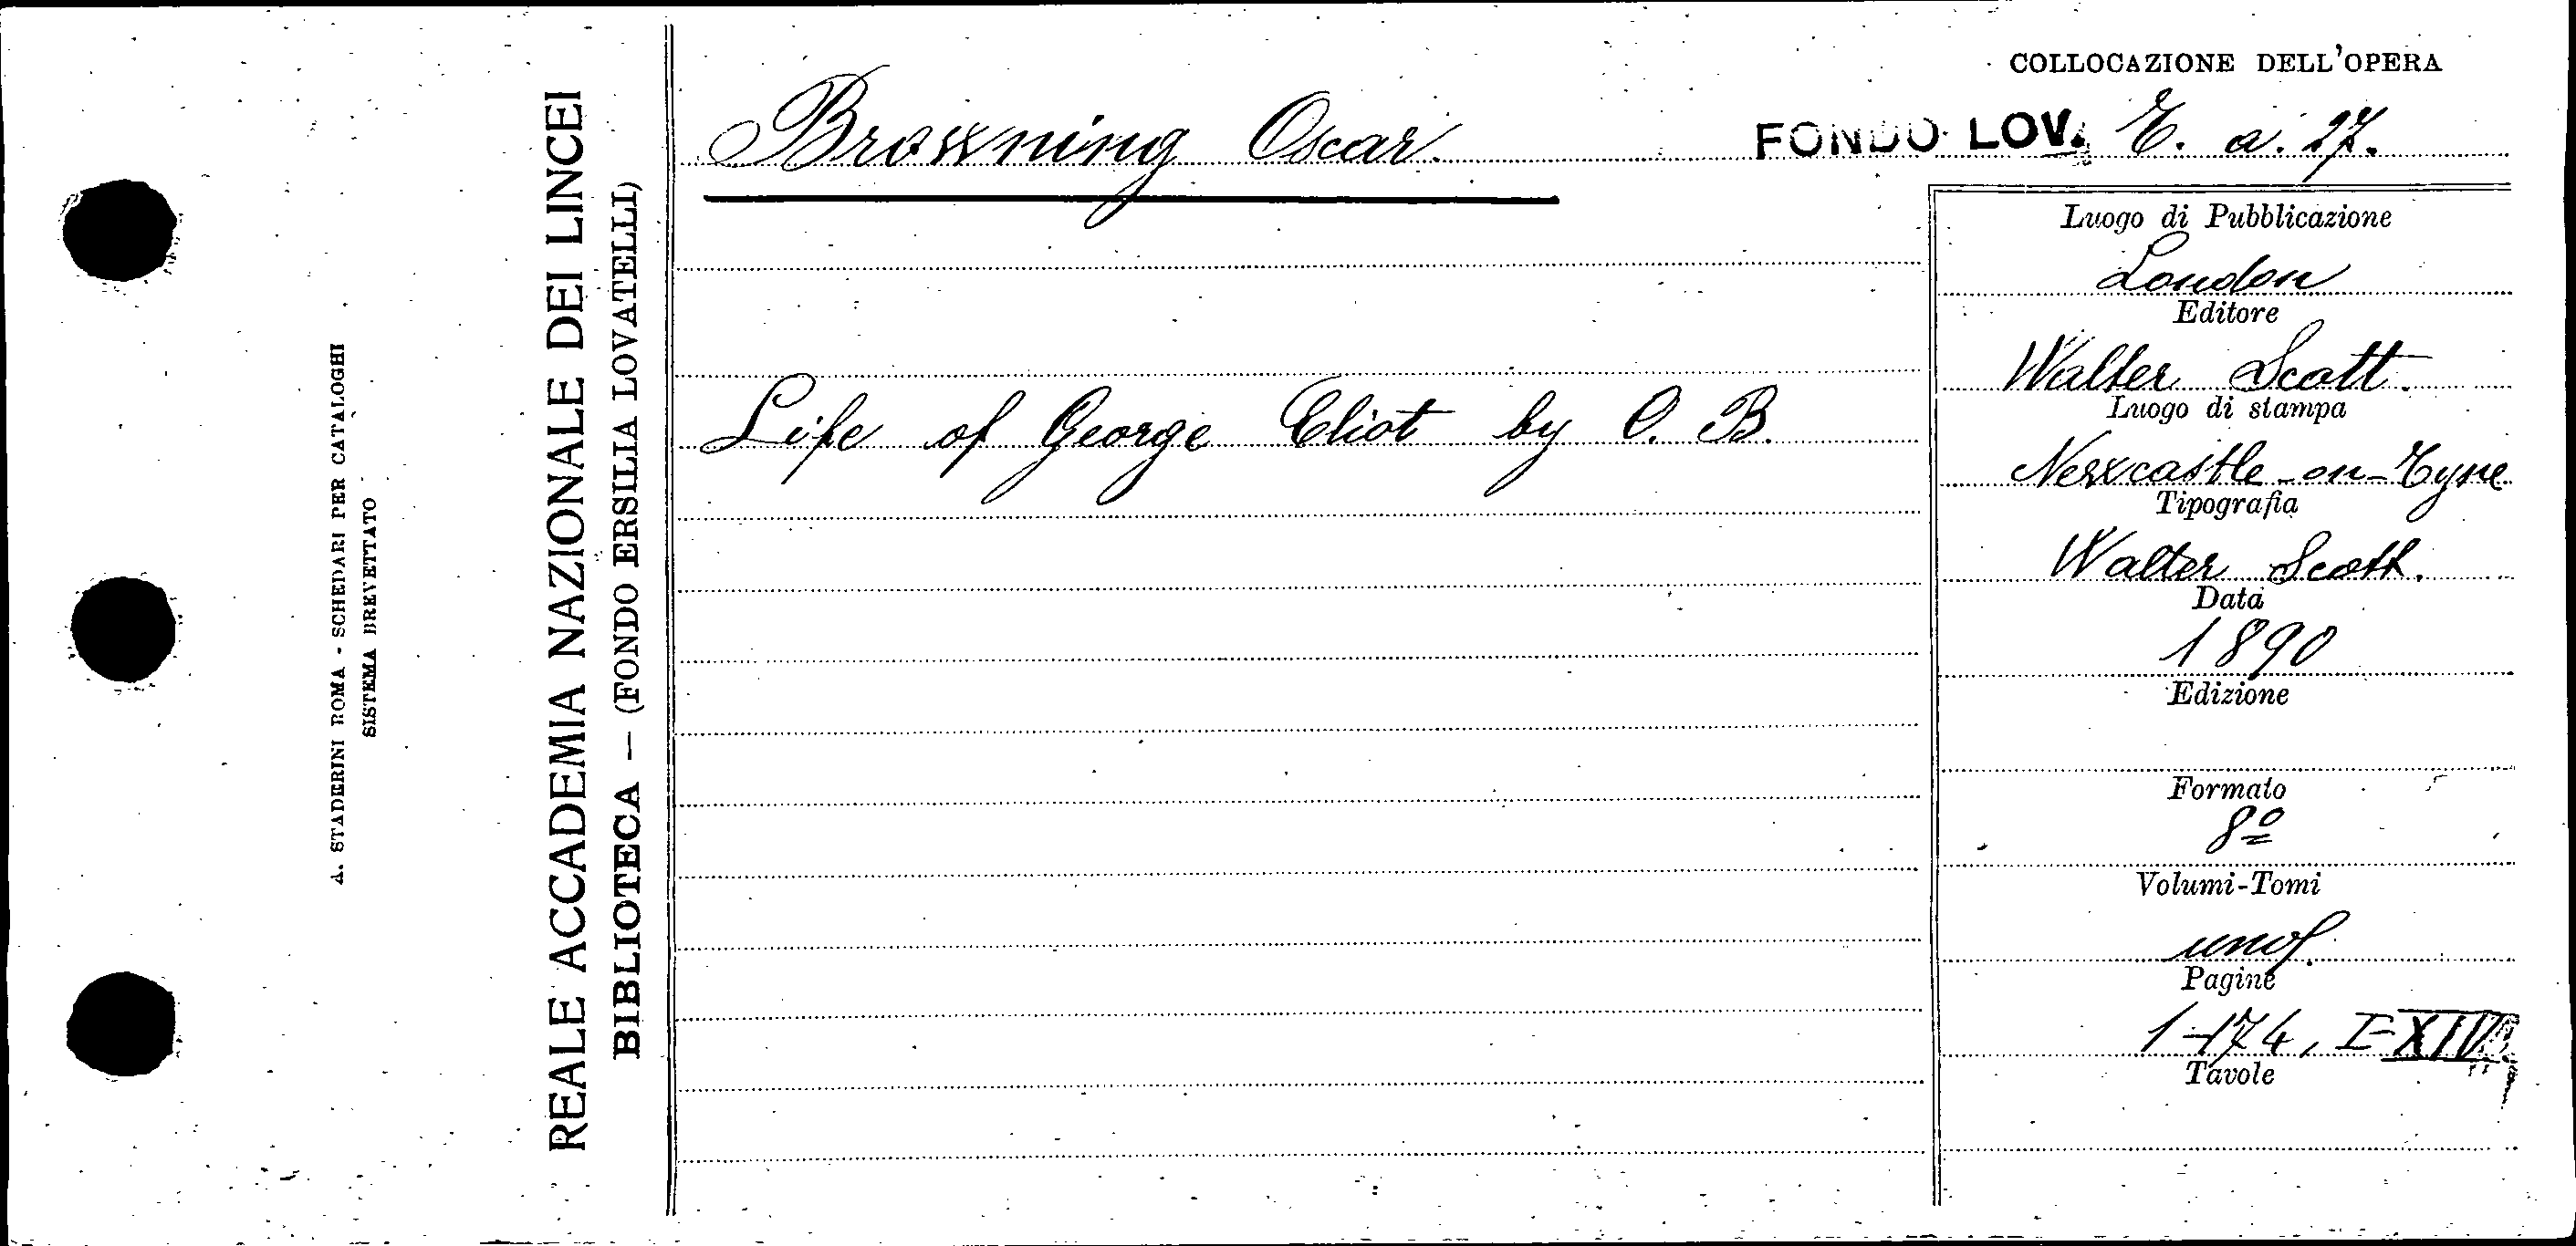 COLLOCAZIONE DELL'OPERA
Browning Oscar.
FONDO LOV. E. a. 27.
Life of George Eliot by O. B.
Luogo di Pubblicazione
London
Editore
Walter Scott.
Luogo di stampa
Newcastle-on-Tyne
Tipografia
Walter Scott.
Data
1890
Edizione
Formato
8º
Volumi-Tomi
uno.
Pagine
1-174, I-XIV
Tavole
REALE ACCADEMIA NAZIONALE DEI LINCEI
BIBLIOTECA — (FONDO ERSILIA LOVATELLI)
A. STADERINI ROMA - SCHEDARI PER CATALOGHI
SISTEMA BREVETTATO